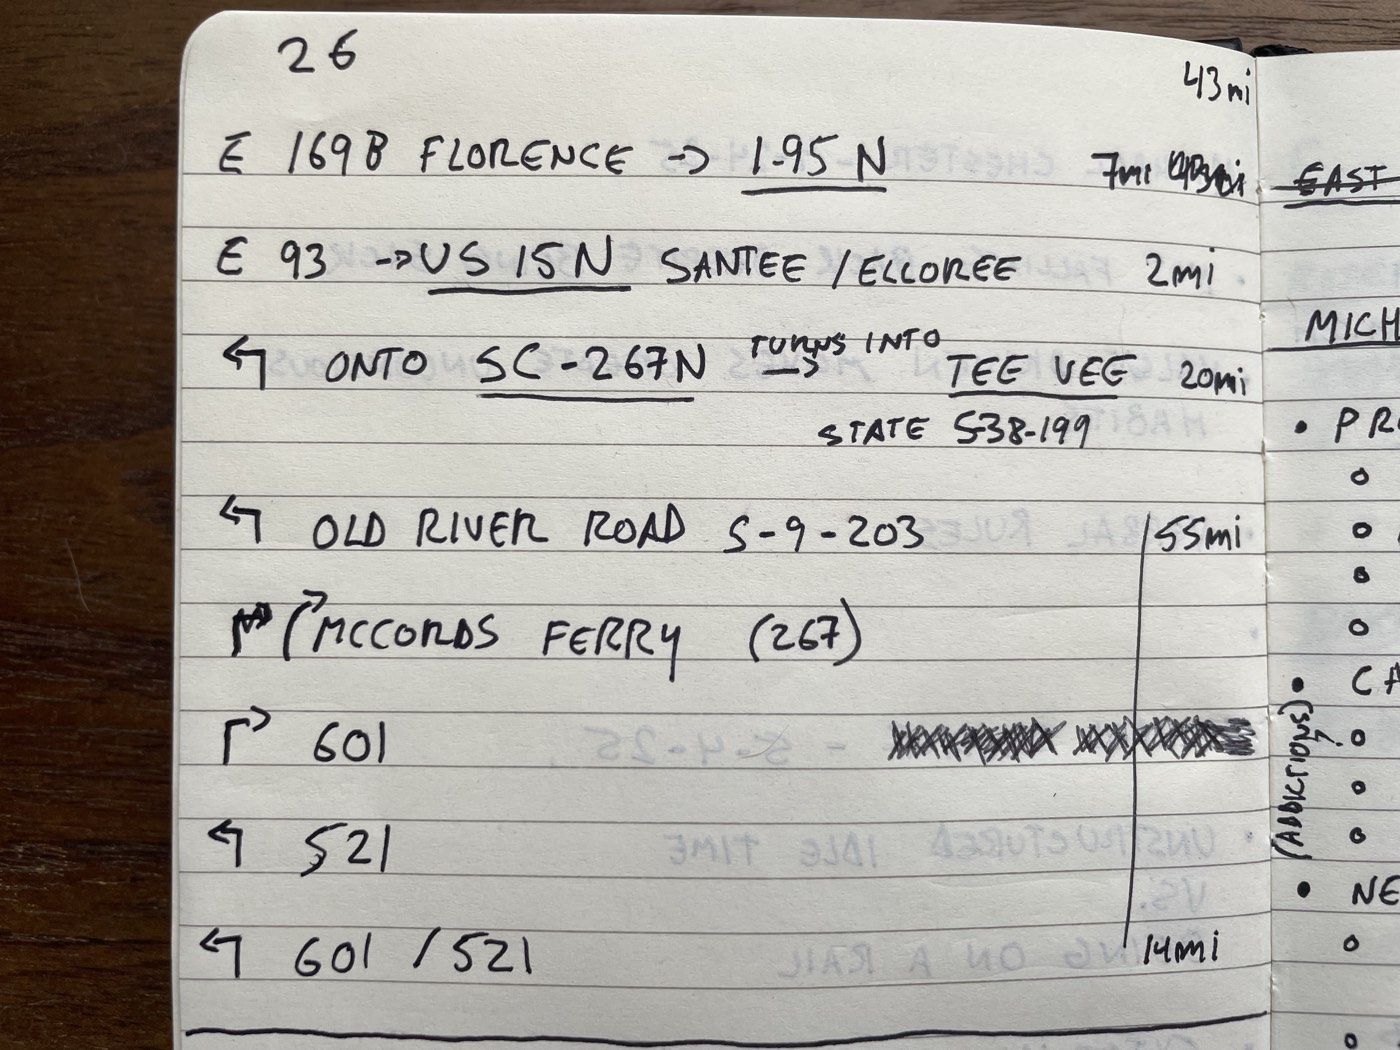 26 43mi
E 169B FLORENCE → I-95 N 7mi
E 93 → US 15N SANTEE / ELLOREE 2mi
↰ ONTO SC-267N TURNS INTO → TEE VEE 20mi
STATE S-38-199
↰ OLD RIVER ROAD S-9-203 55mi
↱ MCCORDS FERRY (267)
↱ 601
↰ 521
↰ 601 / 521 14mi
EAST
MICH
• PR
• CA
(ADDICTIONS)
• NE